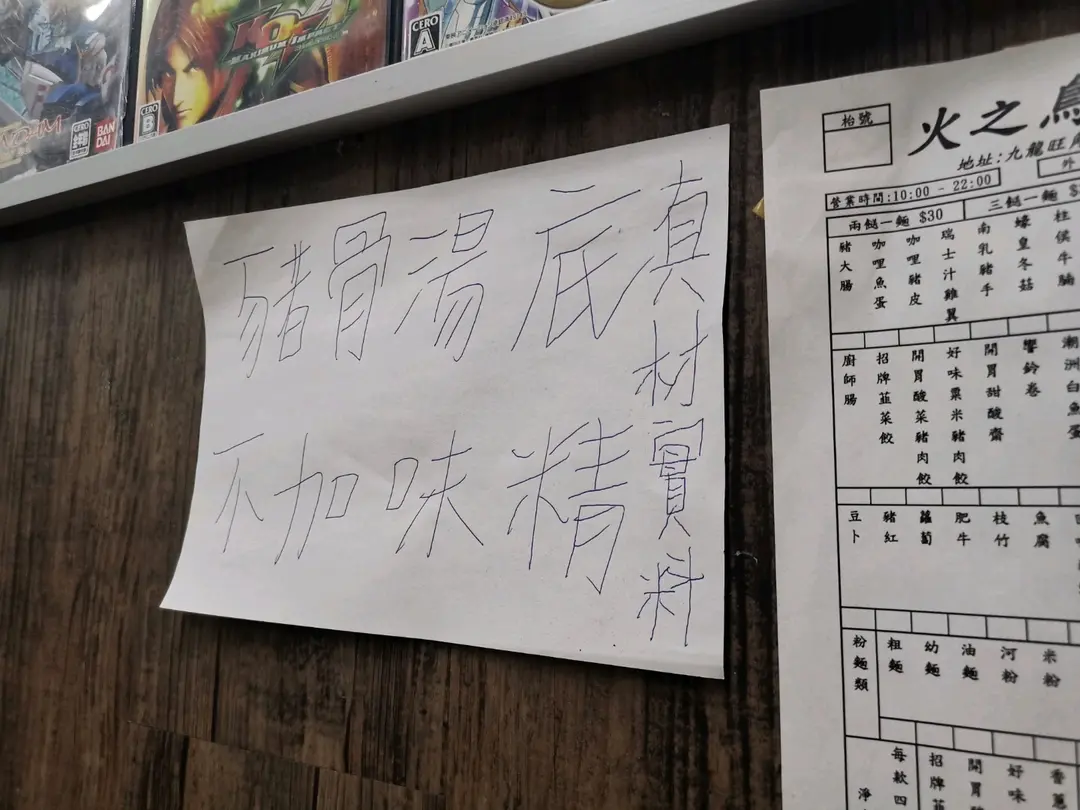 CERO
BAN
DAI
CERO
B
KOF
MAXIMUM IMPACT
CERO
A
豬骨湯底
不加味精
真材實料
枱號
火之鳥
地址:九龍旺
外
營業時間:10:00 - 22:00
兩餸一麵 $30
三餸一麵 $
豬大腸
咖哩魚蛋
咖哩豬皮
瑞士汁雞翼
南乳豬手
蠔皇冬菇
柱侯牛腩
廚師腸
招牌韮菜餃
開胃酸菜豬肉餃
好味粟米豬肉餃
開胃甜酸齋
響鈴卷
潮洲白魚蛋
豆卜
豬紅
蘿蔔
肥牛
枝竹
魚腐
粉麵類
粗麵
幼麵
油麵
河粉
米粉
淨
每款四
招牌韮
開胃
好味
香蔥